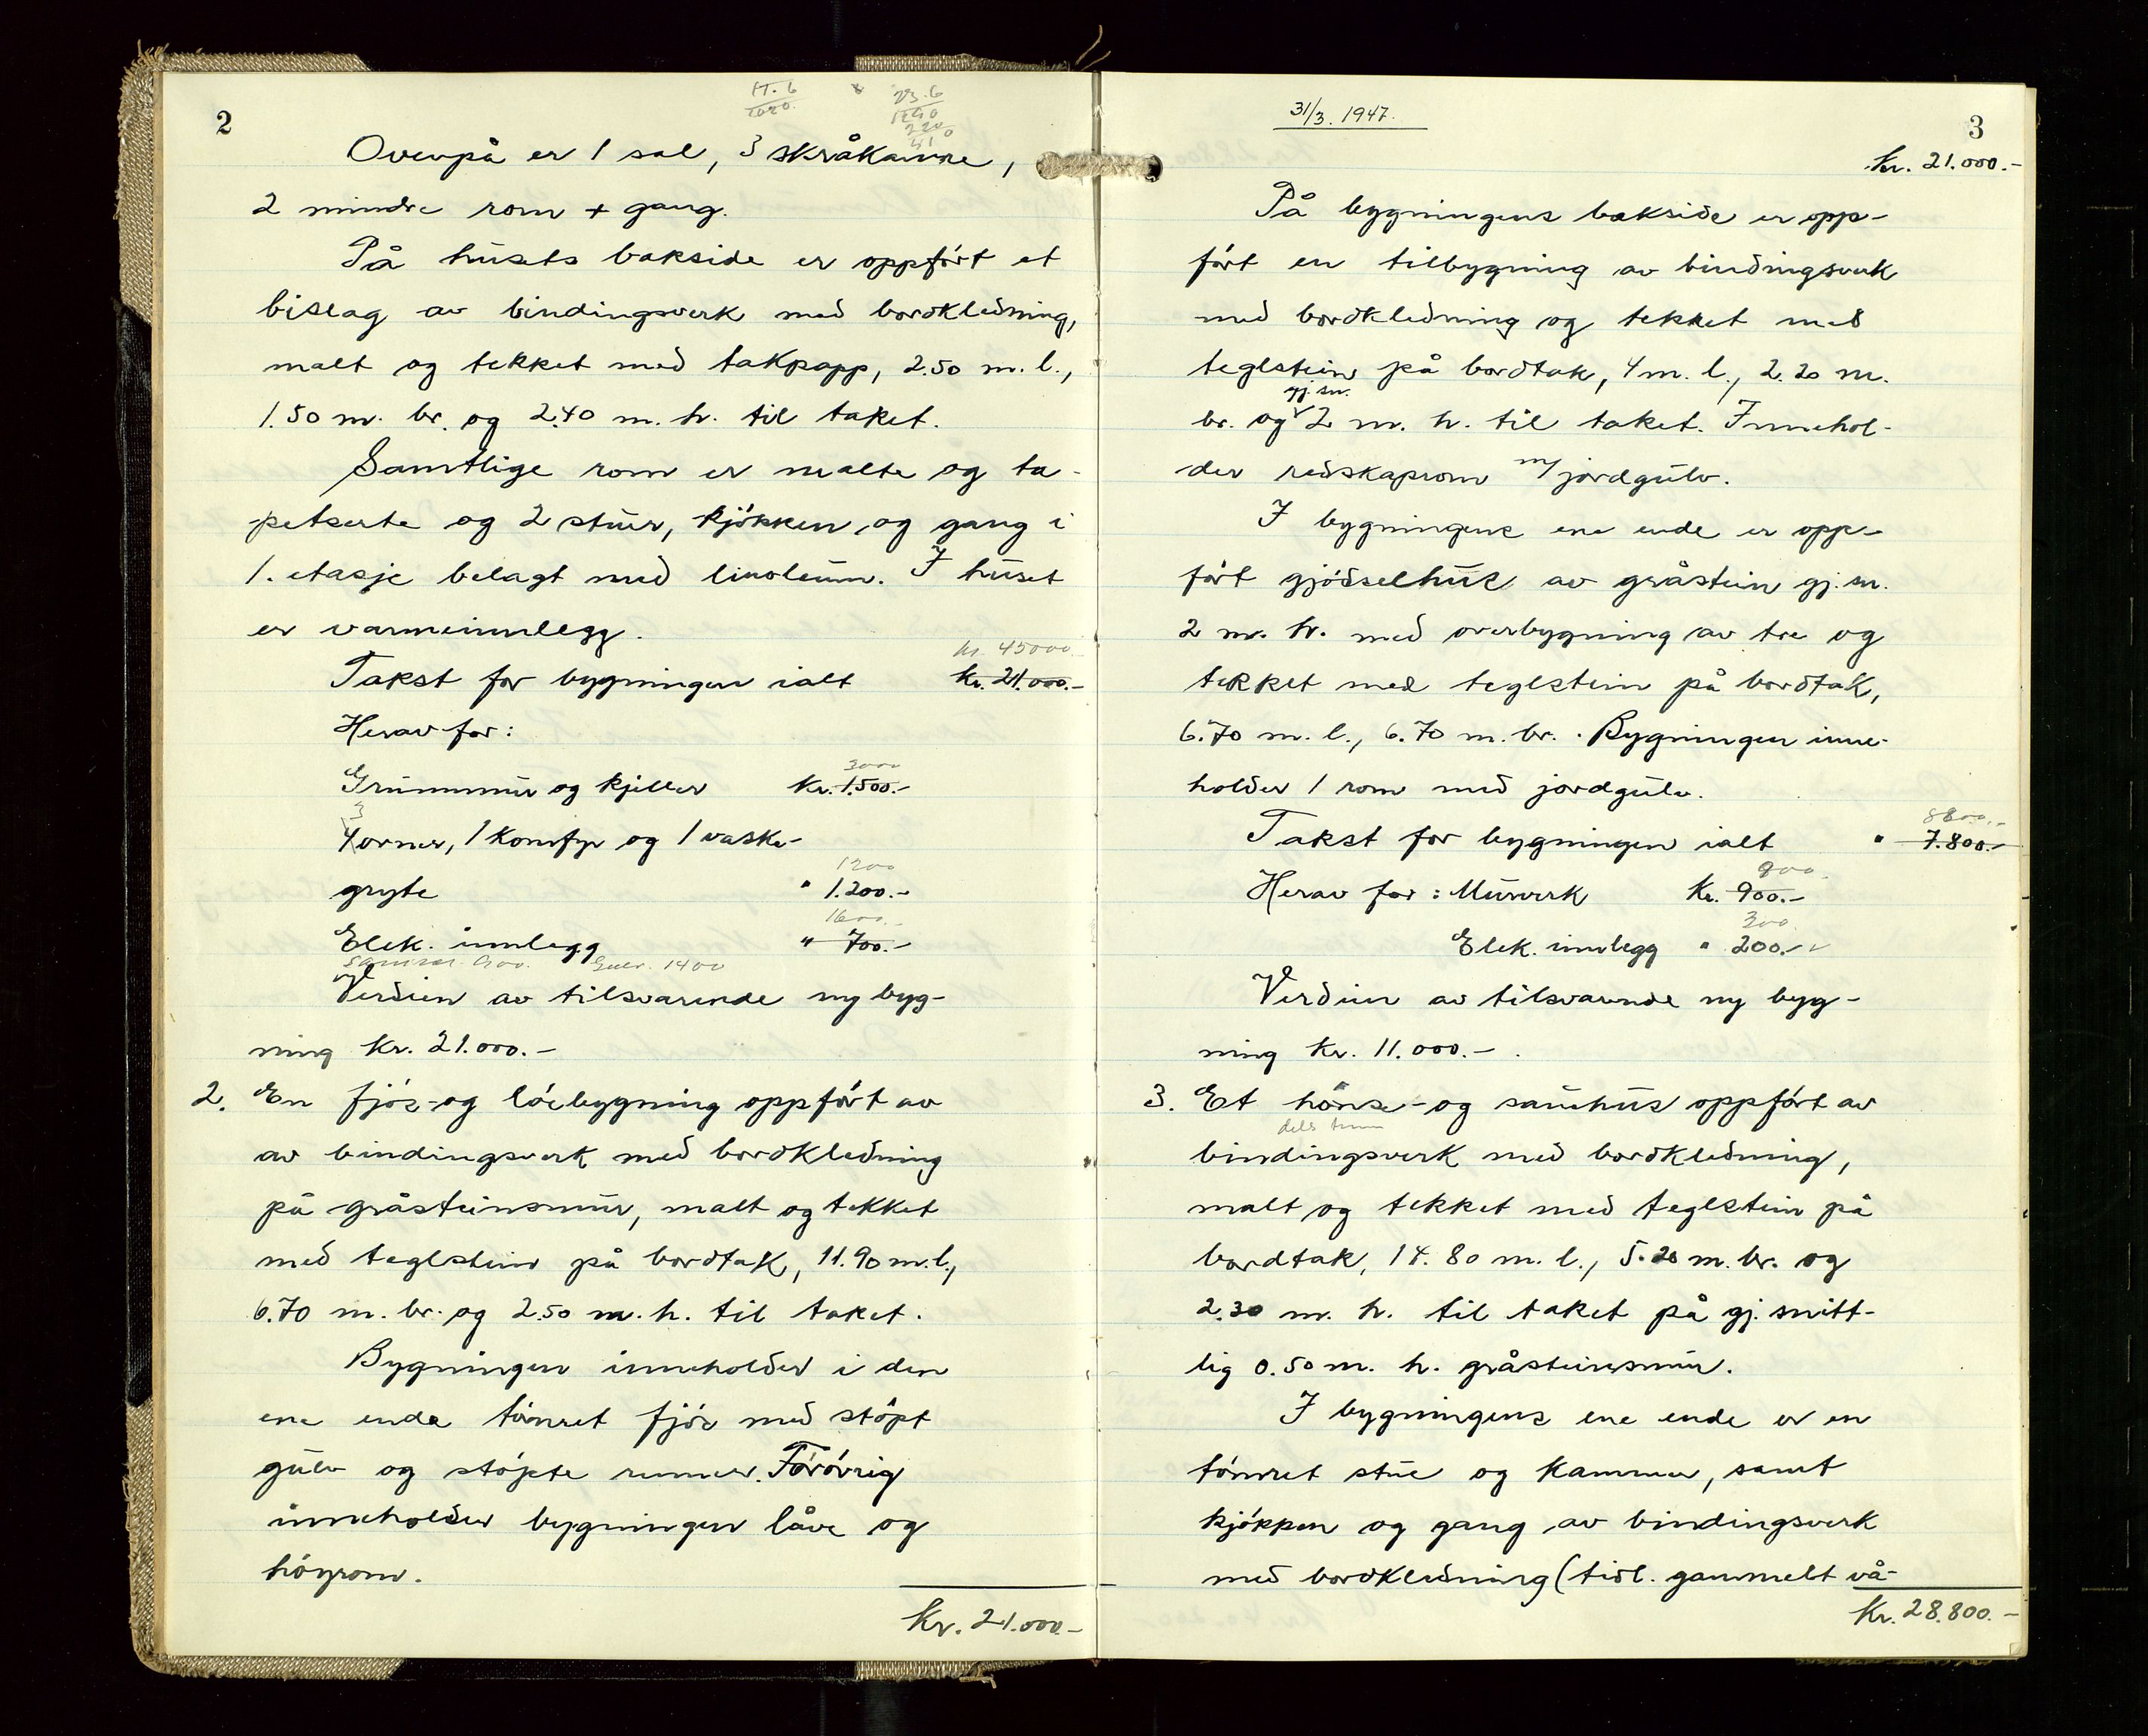 2
Ovenpå er 1 sal, 3 skråkamre,
2 mindre rom + gang.
På husets bakside er oppført et
bislag av bindingsverk med bordkledning,
malt og tekket med takpapp, 2.50 m. l.,
1.50 m. br. og 2.40 m. h. til taket.
Samtlige rom er malte og ta-
petserte og 2 stuer, kjøkken og gang i
1. etasje belagt med linoleum. I huset
er varmeinnlegg.
kr. 45000
Takst for bygningen ialt kr. 21.000.-
Herav for:
3000
Grunnmur og kjeller Kr. 1.500.-
3
4 ovner, 1 komfyr og 1 vaske-
1200
gryte " 1.200.-
1600.-
Elek. innlegg " 700.-
1400
Verdien av tilsvarende ny byg-
ning kr. 21.000.-
2. En fjøs- og løebygning oppført av
av bindingsverk med bordkledning
på gråsteinsmur, malt og tekket
med teglstein på bordtak, 11.90 m. l.,
6.70 m. br. og 2.50 m. h. til taket.
Bygningen inneholder i den
ene ende tømret fjøs med støpt
gulv og støpte renner. Forøvrig
inneholder bygningen låve og
høyrom.
Kr. 21.000.-
31/3. 1947.
3
Kr. 21.000.-
På bygningens bakside er opp-
ført en tilbygning av bindingsverk
med bordkledning og tekket med
teglstein på bordtak, 4 m. l., 2.20 m.
gj. sn.
br. og 2 m. h. til taket. Innehol-
der redskaprom m/ jordgulv.
I bygningens ene ende er opp-
ført gjødselhus av gråstein gj. sn.
2 m. h. med overbygning av tre og
tekket med teglstein på bordtak,
6.70 m. l., 6.70 m. br. . Bygningen inne-
holder 1 rom med jordgulv.
8800.-
Takst for bygningen ialt " 7.800.-
900.
Herav for: Murverk Kr. 900.-
300
Elek. innlegg " 200.-
Verdien av tilsvarende ny byg-
ning kr. 11.000.-
3. Et hønse- og sauehus oppført av
dels
bindingsverk med bordkledning,
malt og tekket med teglstein på
bordtak, 14.80 m. l., 5.20 m. br. og
2.30 m. h. til taket på gj. snitt-
lig 0.50 m. h. gråsteinsmur.
I bygningens ene ende er en
tømret stue og kammer, samt
kjøkken og gang av bindingsverk
med bordkledning (tidl. gammelt vå-
Kr. 28.800.-